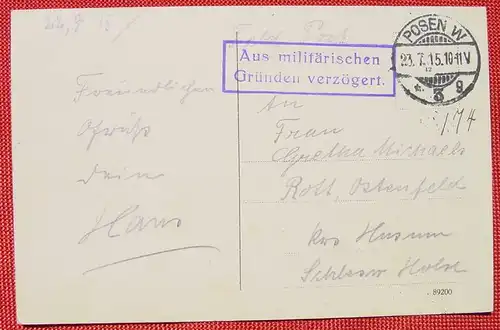 Feld Post
Aus militärischen
Gründen verzögert.
POSEN W
23.7.15.10-11V
* 3 g
174
Freundlichen
Gruß
Dein
Hans
An
Frau
Gretha Michaels
Rott. Ostenfeld
Krs Husum
Schlesw Holst.
89200